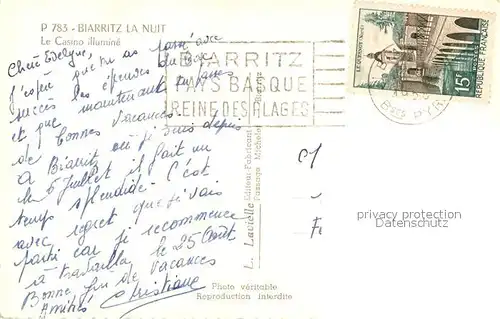 P 783 - BIARRITZ LA NUIT
Le Casino illuminé
Chère Edelyne,
J'espère que tu as passé avec
succès les épreuves du
et que maintenant tu
de bonnes vacances.
à Biarritz où je suis depuis
le 5 Juillet il fait un
temps splendide. C'est
avec regret que je vais
partir car je recommence
à travailler le 25 Août
Bonne fin de vacances
Amitiés Christiane
BIARRITZ
PAYS BASQUE
REINE DES PLAGES
LE QUESNOY (Nord)
REPUBLIQUE FRANÇAISE
15F
L. Lavielle Edition Fabricant
Passage Michelet Biarritz
privacy protection
Datenschutz
Photo véritable
Reproduction interdite